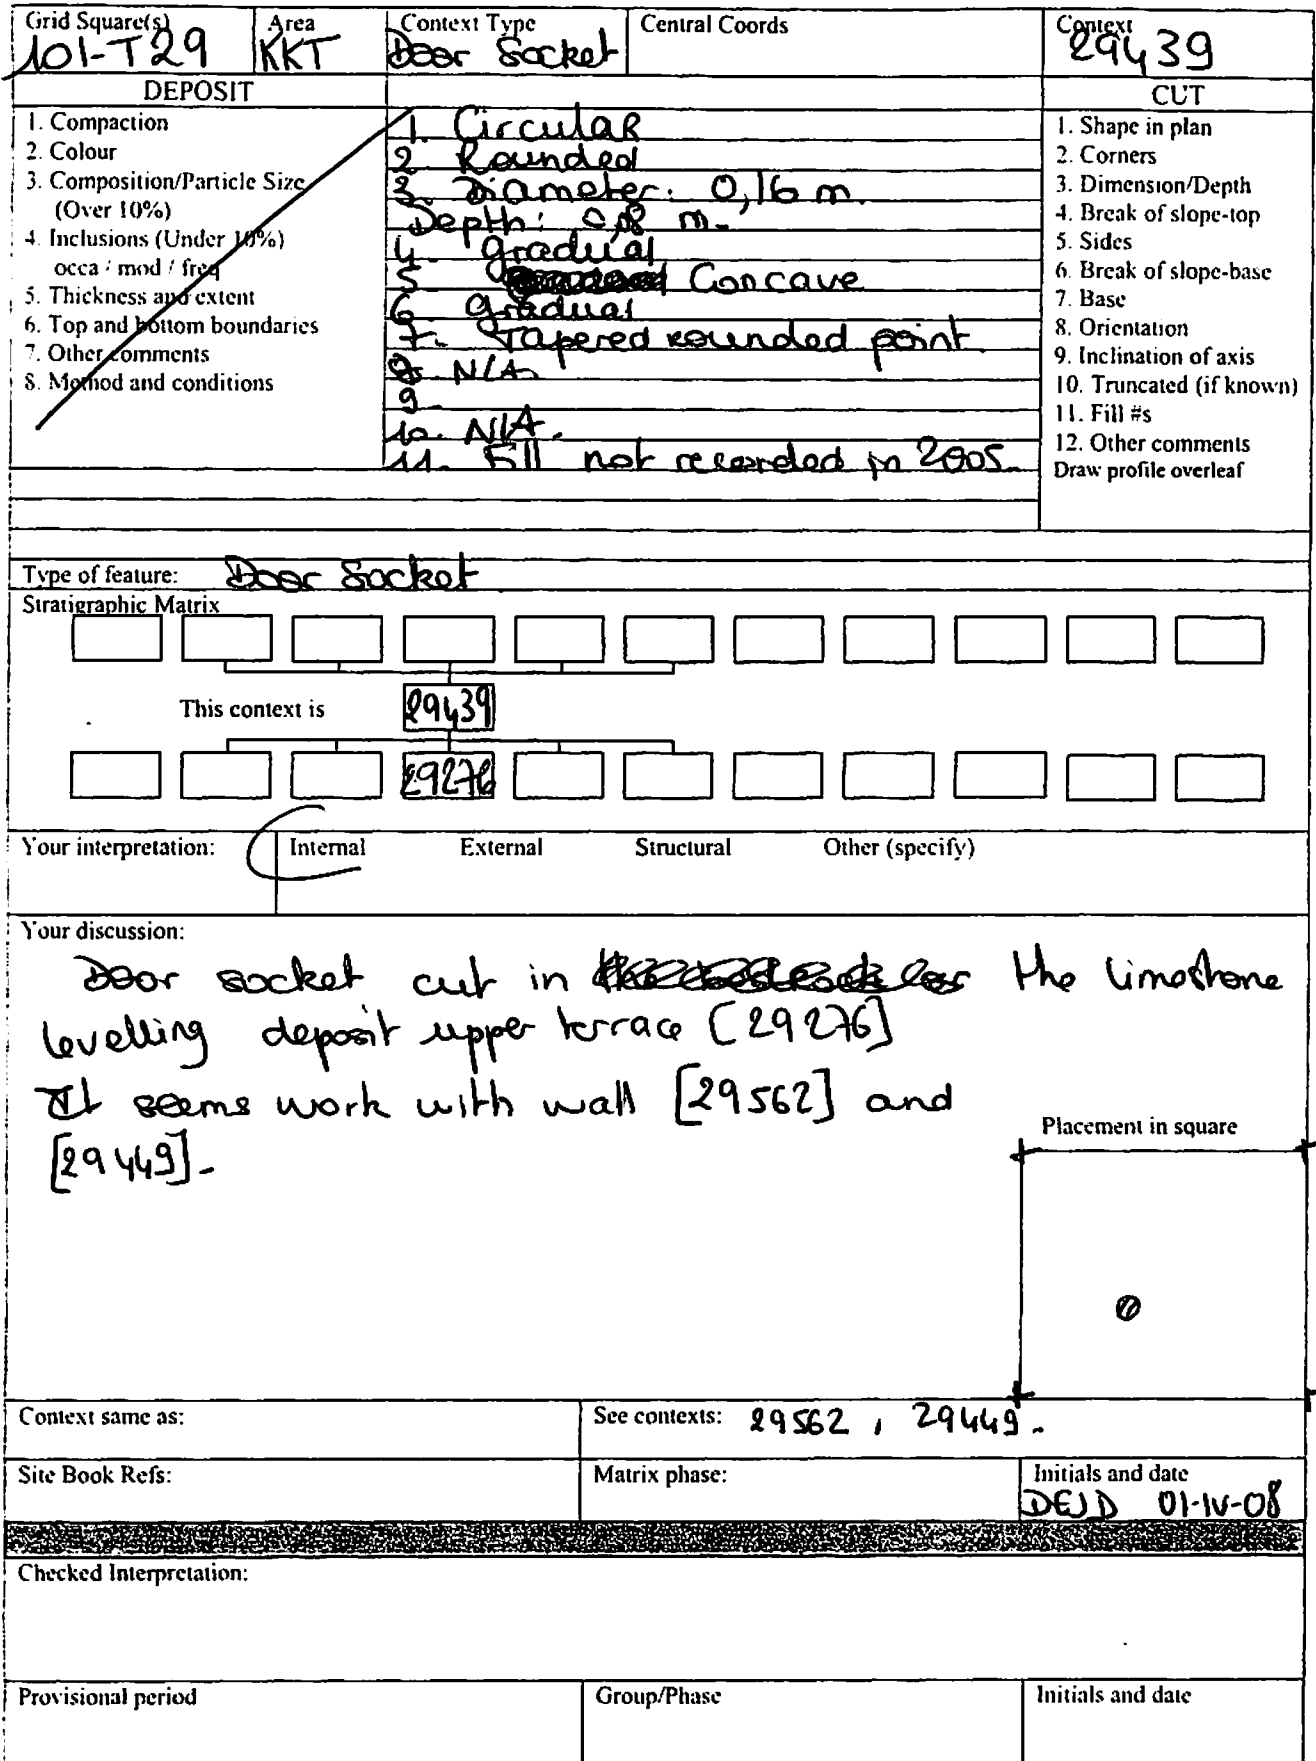 Grid Square(s) Area Context Type Central Coords Context
101-T29 KKT Door Socket 29439
DEPOSIT CUT
1. Compaction
2. Colour
3. Composition/Particle Size
(Over 10%)
4. Inclusions (Under 10%)
occa / mod / freq
5. Thickness and extent
6. Top and bottom boundaries
7. Other comments
8. Method and conditions
1. Circular
2. Rounded
3. Diameter: 0,16 m.
Depth: 0,08 m.
4. gradual
5 Concave
6 gradual
7. Tapered rounded point
8. N/A.
9.
10. N/A.
11. Fill not recorded in 2005.
1. Shape in plan
2. Corners
3. Dimension/Depth
4. Break of slope-top
5. Sides
6. Break of slope-base
7. Base
8. Orientation
9. Inclination of axis
10. Truncated (if known)
11. Fill #s
12. Other comments
Draw profile overleaf
Type of feature: Door Socket
Stratigraphic Matrix
This context is 29439
29276
Your interpretation: Internal External Structural Other (specify)
Your discussion:
Door socket cut in the limestone
levelling deposit upper terrace [29276]
It seems work with wall [29562] and
[29449].
Placement in square
Context same as: See contexts: 29562, 29449.
Site Book Refs: Matrix phase: Initials and date
DEJD 01-IV-08
Checked Interpretation:
Provisional period Group/Phase Initials and date